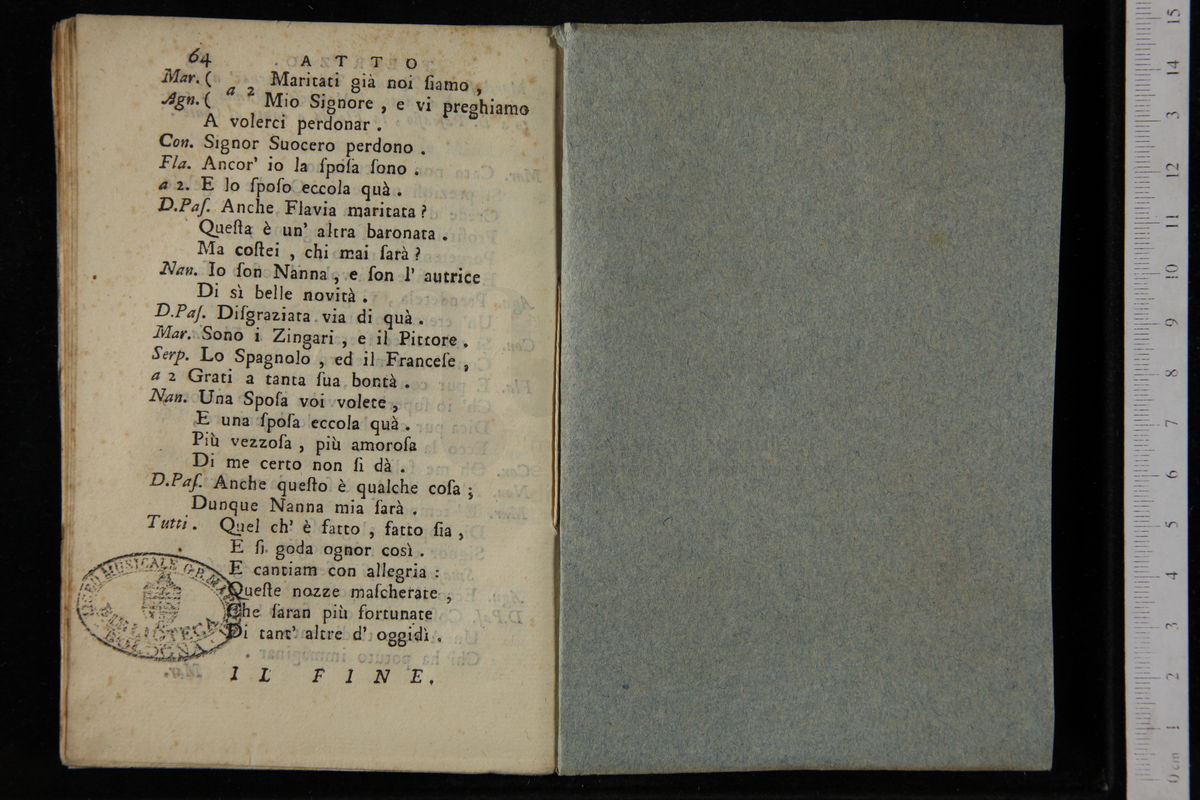 64 ATTO
Mar. ( a 2 Maritati già noi ſiamo ,
Agn. ( Mio Signore , e vi preghiamo
A volerci perdonar .
Con. Signor Suocero perdono .
Fla. Ancor' io la ſpoſa ſono .
a 2. E lo ſpoſo eccola quà .
D.Paſ. Anche Flavia maritata ?
Queſta è un' altra baronata .
Ma coſtei , chi mai ſarà ?
Nan. Io ſon Nanna , e ſon l' autrice
Di sì belle novità .
D.Paſ. Diſgraziata via di quà .
Mar. Sono i Zingari , e il Pittore ,
Serp. Lo Spagnolo , ed il Franceſe ,
a 2 Grati a tanta ſua bontà .
Nan. Una Spoſa voi volete ,
E una ſpoſa eccola quà .
Più vezzoſa , più amoroſa
Di me certo non ſi dà .
D.Paſ. Anche queſto è qualche coſa ;
Dunque Nanna mia ſarà .
Tutti . Quel ch' è fatto , fatto ſia ,
E ſi goda ognor così .
E cantiam con allegria :
Queſte nozze maſcherate ,
Che ſaran più fortunate
Di tant' altre d' oggidì .
IL FINE.
MUSICALE G.B. MARTINI
BIBLIOTECA
BOLOGNA
0 cm 1 2 3 4 5 6 7 8 9 10 11 12 13 14 15